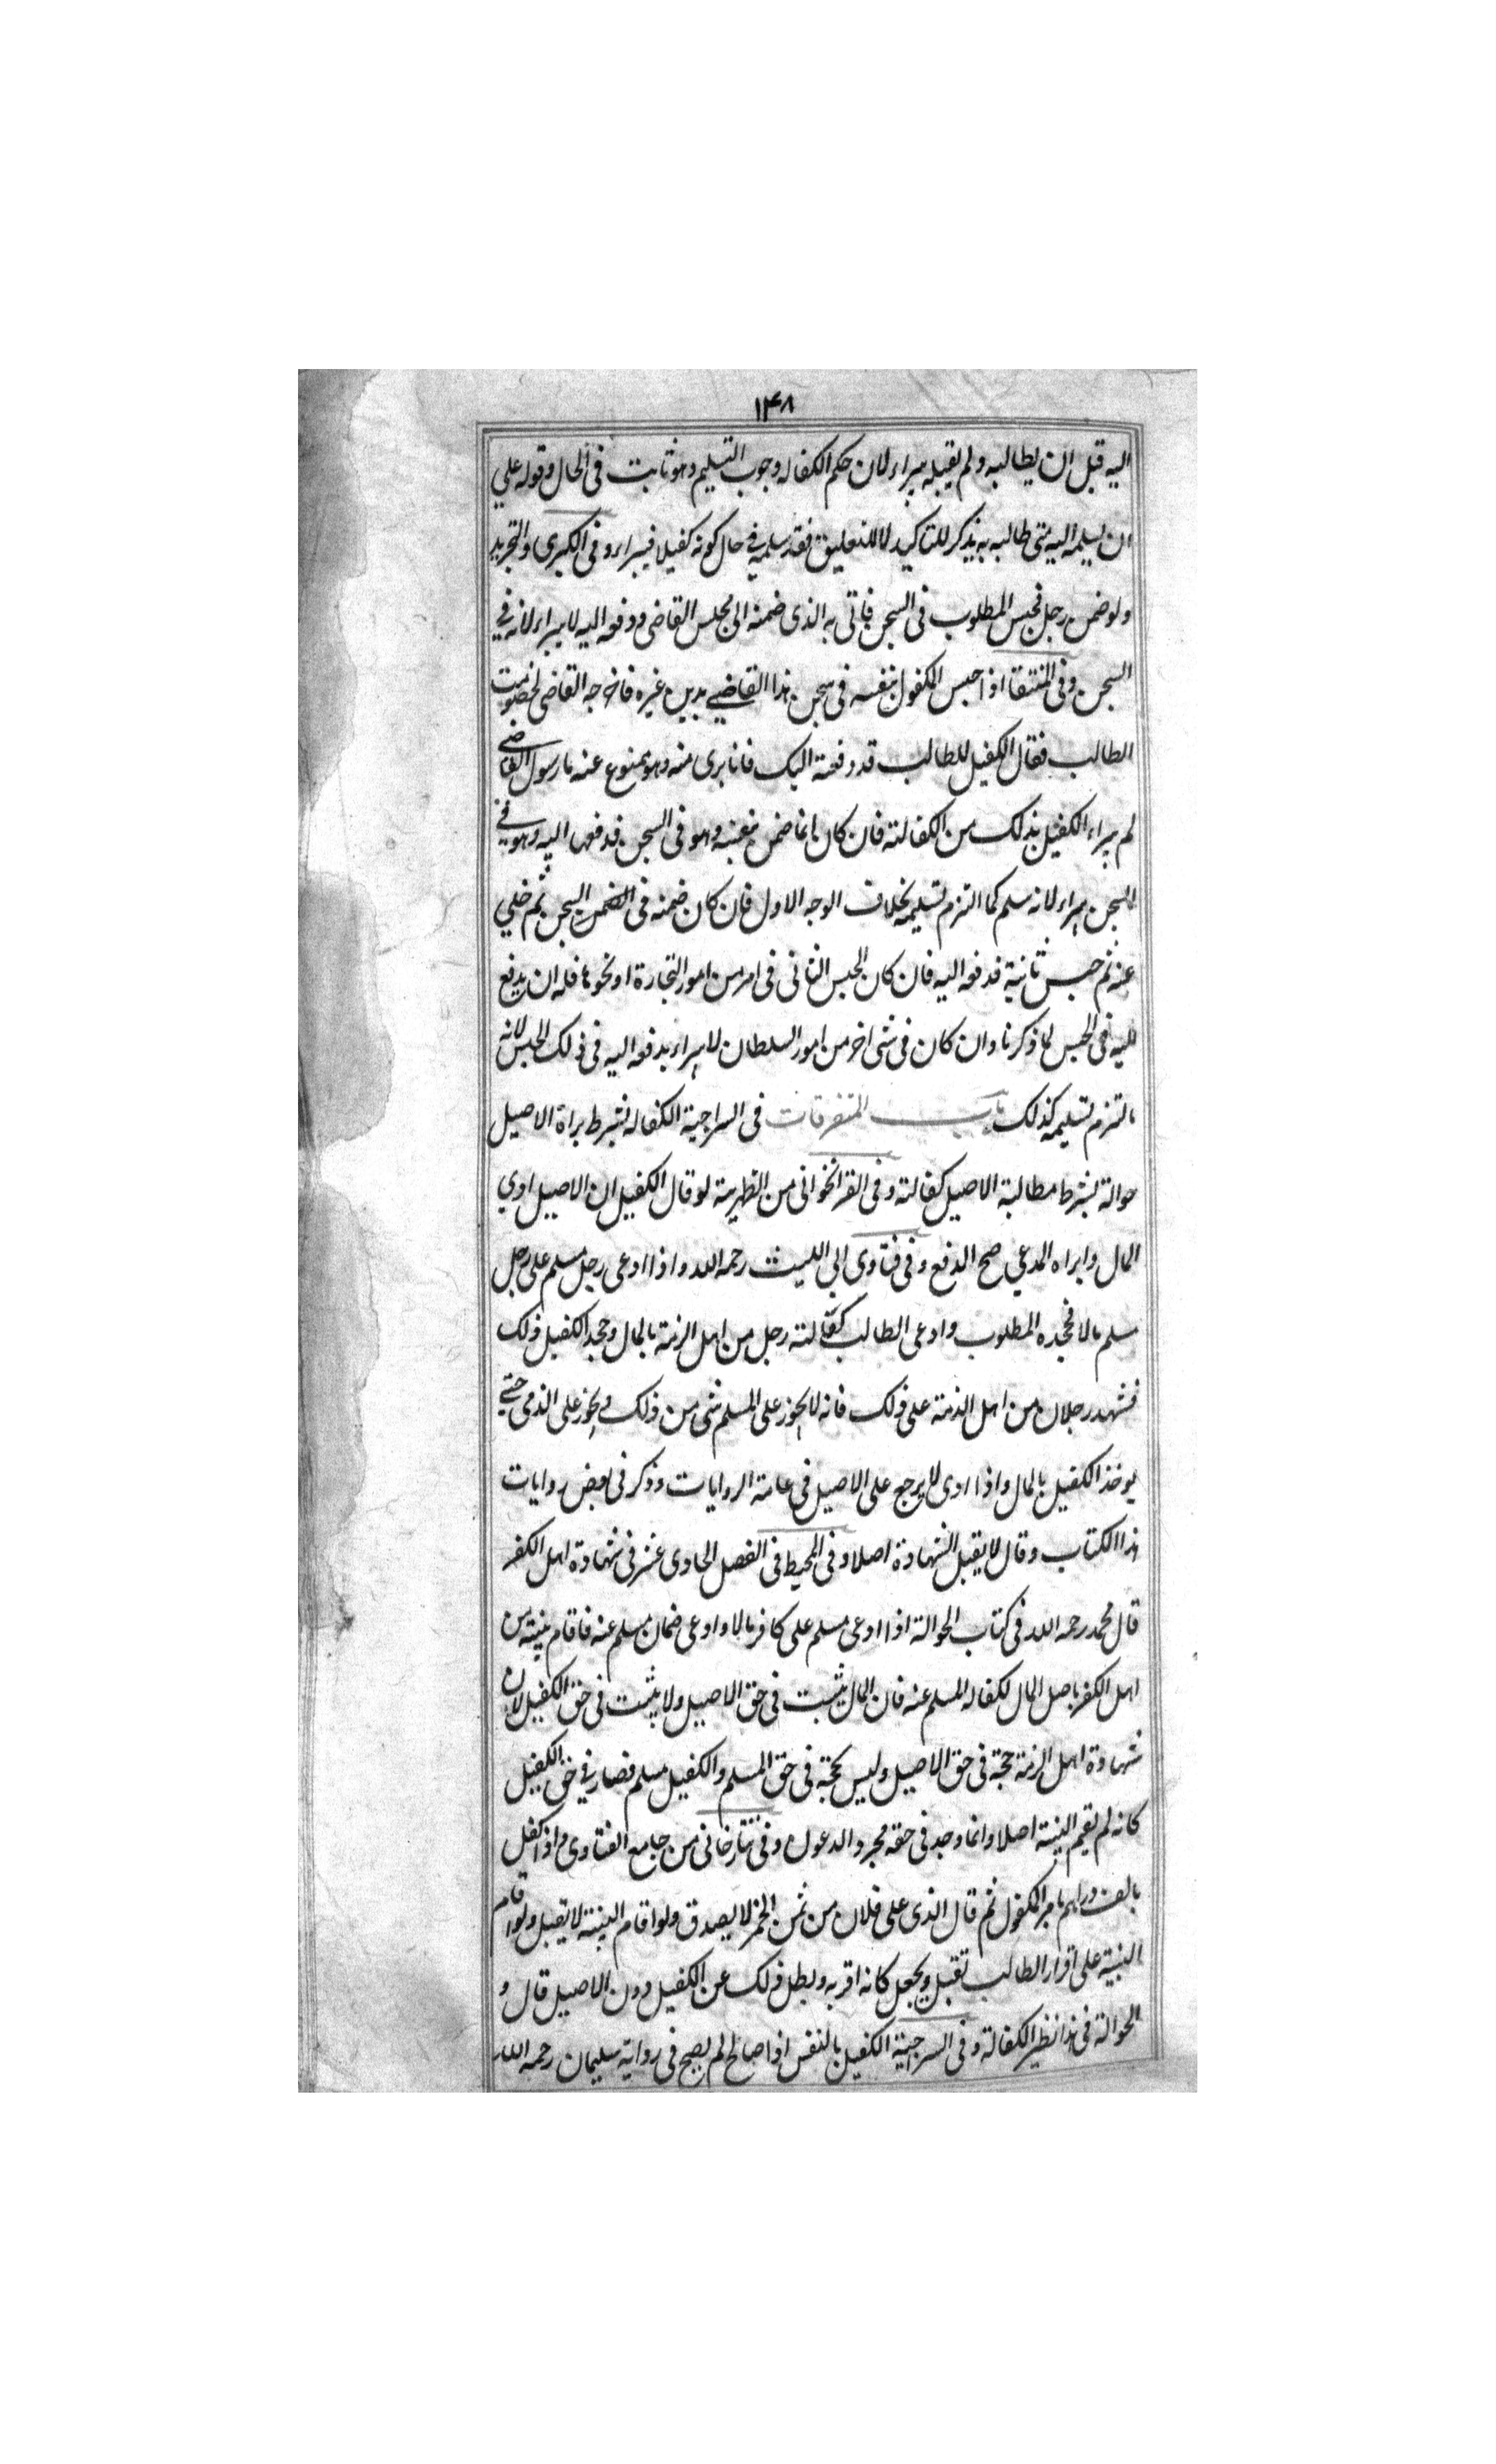 ۱۴۸
اليه قبل ان يطالبه ولم يقبله يبراء لان حكم الكفاله وجوب التسليم وهو ثابت فى الحال وقوله علي
ان يسلمه اليه متى طالبه به يذكر للتاكيد لا للتعليق فقد سلمه في حال كونه كفيلا فيبراء وفى الكبرى والتجريد
ولو ضمن رجل فحبس المطلوب فى السجن فاتى به الذى ضمنه الى مجلس القاضى ودفعه اليه لا يبراء لانه في
السجن وفى المنتقا اذا حبس المكفول بنفسه فى سجن هذا القاضي بدين غيره فاخرجه القاضى لخصومت
الطالب فقال الكفيل للطالب قد دفعته اليك فانا برى منه وهو ممنوع عنه بارسول القاضي
لم يبراء الكفيل بذلك من الكفالته فان كان انما ضمن بنفسه وهو فى السجن فدفعها اليه وهو في
السجن يبراء لانه سلم كما التزم تسليمه بخلاف الوجه الاول فان كان ضمنه فى السجن ثم خلي
عنه ثم حبس ثانية فدفعه اليه فان كان الحبس الثانى فى امر من امور التجارة او نحوها فله ان يدفع
اليه فى الحبس لما ذكرنا وان كان فى شى اخر من امور السلطان لا يبراء بدفعه اليه فى ذلك الحبس لانه
ما التزم تسليمه كذلك باب المتفرقات فى السراجية الكفاله بشرط براة الاصيل
حوالة بشرط مطالبة الاصيل كفالته وفى القراخوانى من الظهيرية لو قال الكفيل ان الاصيل ادي
المال وابراه المدعي صح الدفع وفى فتاوى ابى الليث رحمه الله واذا ادعى رجل مسلم على رجل
مسلم مالا فجحده المطلوب وادعى الطالب كفالته رجل من اهل الذمة بالمال وجحد الكفيل ذلك
فشهد رجلان من اهل الذمة على ذلك فانه لا يجوز على المسلم شى من ذلك ويجوز على الذمى حتى
يوخذ الكفيل بالمال واذا ادى لا يرجع على الاصيل فى عامة الروايات وذكر فى بعض روايات
هذا الكتاب وقال لا يقبل الشهادة اصلا وفى المحيط فى الفصل الحادى عشر فى شهادة اهل الكفر
قال محمد رحمه الله فى كتاب الحوالة اذا ادعى مسلم على كافر مالا وادعى ضمان مسلم عنه فاقام بينته من
اهل الكفر باصل المال لكفاله المسلم عنه فان المال يثبت فى حق الاصيل ولا يثبت فى حق الكفيل لان
شهادة اهل الذمة حجة فى حق الاصيل وليس بحجة فى حق المسلم والكفيل مسلم فصار في حق الكفيل
كانه لم يقيم البينة اصلا وانما وجد فى حقه مجرد الدعوى وفى تتارخانى من جامع الفتاوى واذا كفل
بالف دراهم بامر المكفول ثم قال الذى على فلان من ثمن الخمر لا يصدق ولو اقام البينة لا يقبل ولو اقام
البينة على اقرار الطالب تقبل ويجعل كانه اقر به وبطل ذلك عن الكفيل دون الاصيل قال و
الحوالة فى هذا نظير الكفالة وفى السرجية الكفيل بالنفس اذا صالح لم يصح فى رواية سليمان رحمه الله